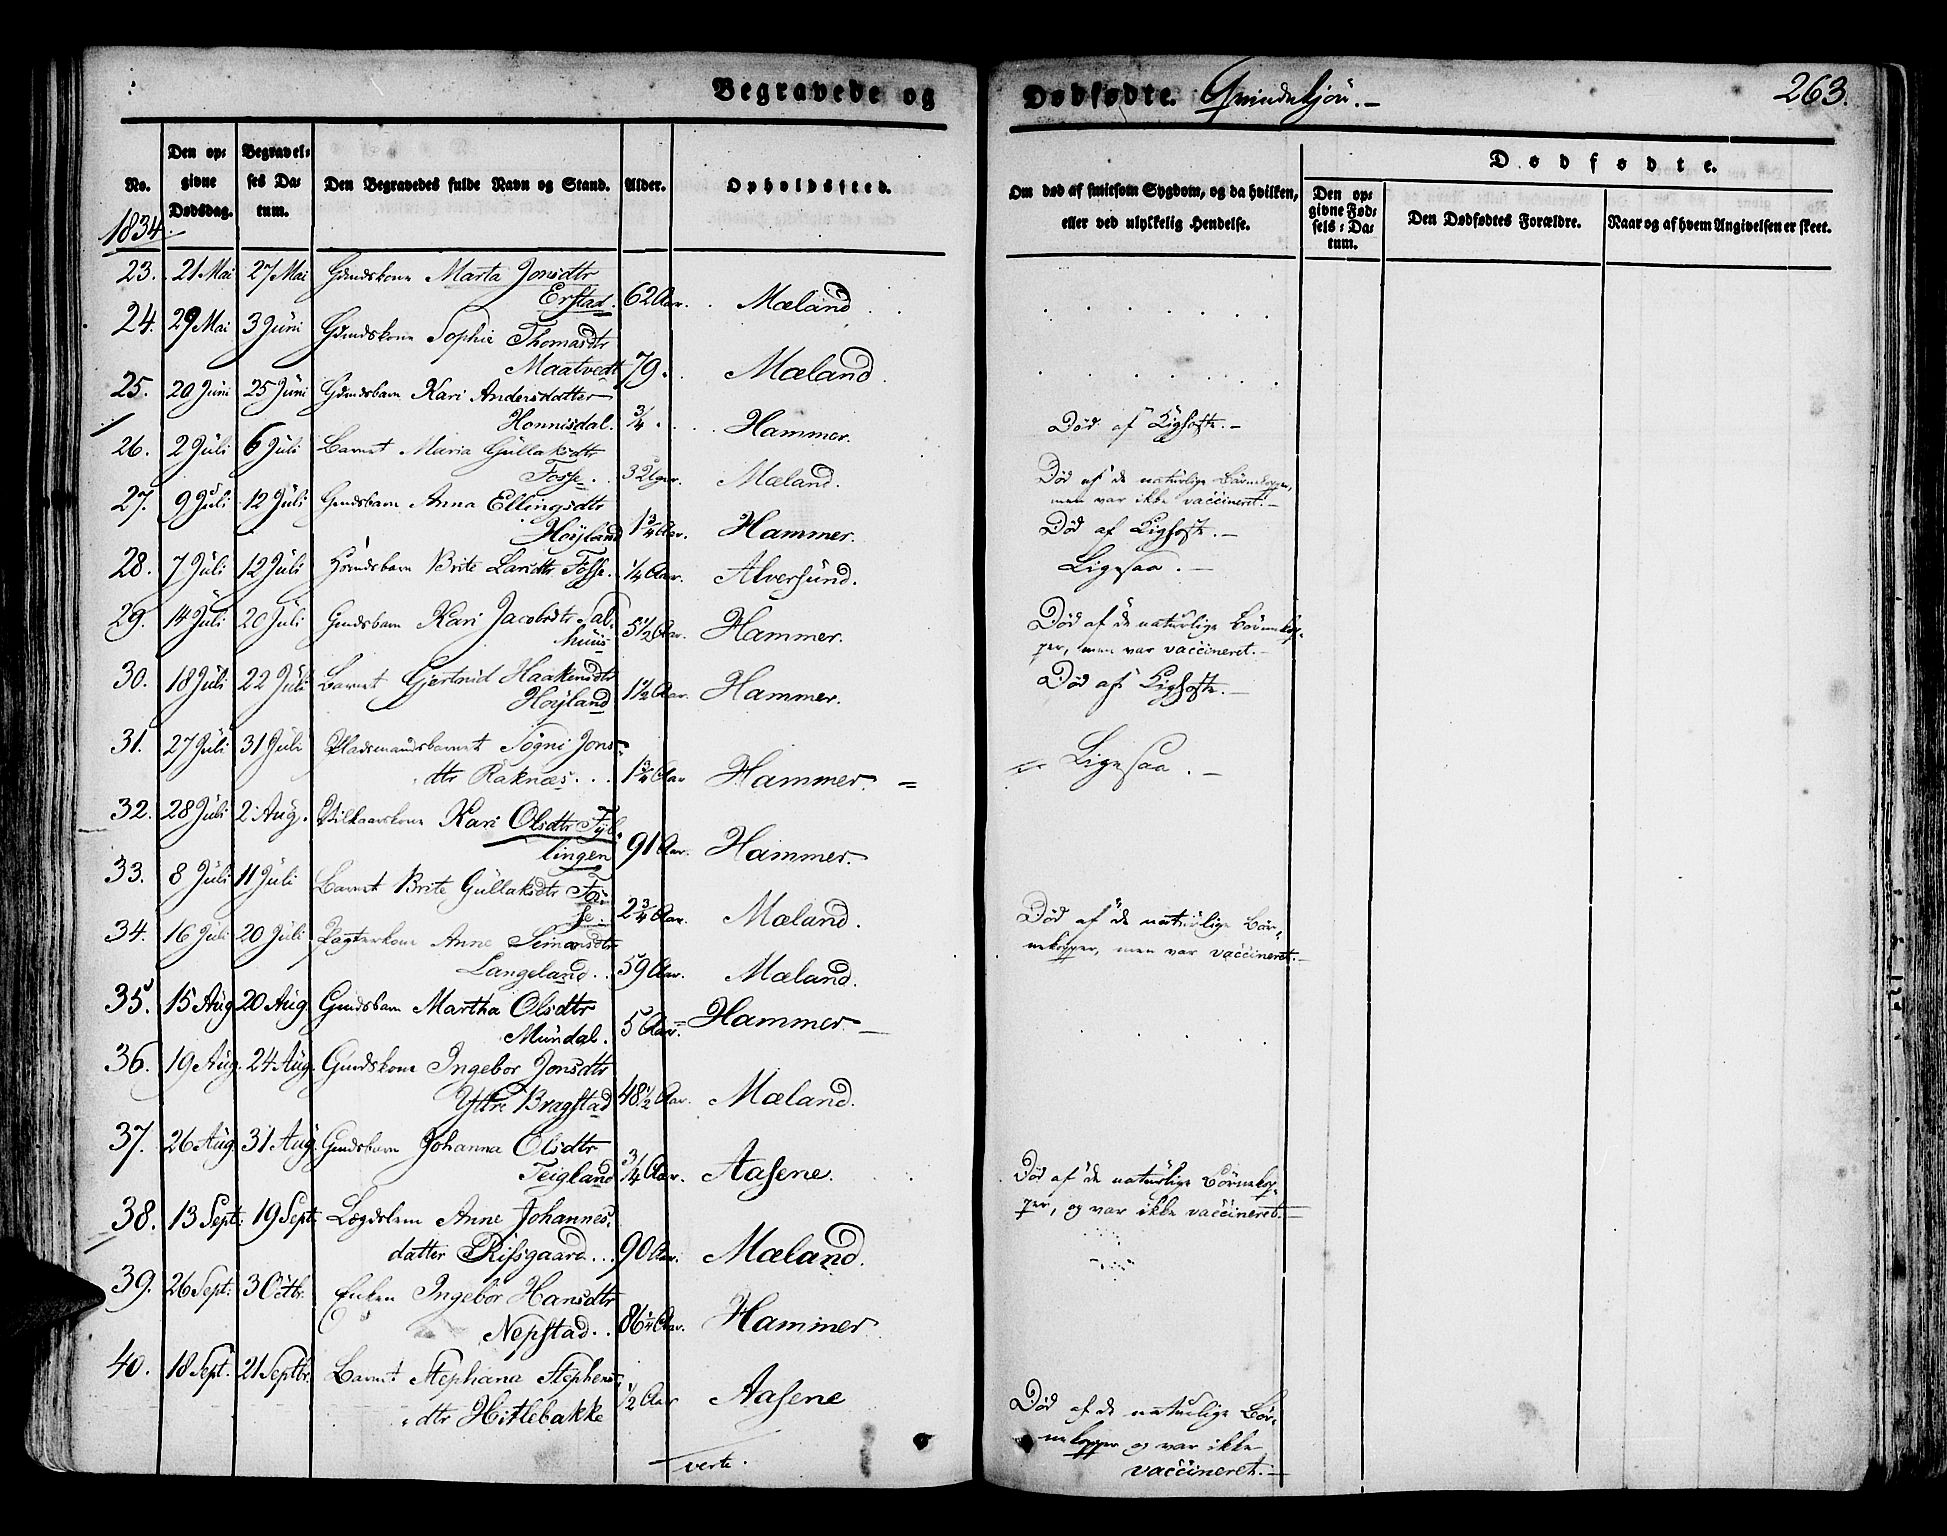 Begravede og Dødfødte. Qvindekjøn. 263.
No. Den opgivne Dødsdag. Begravelses Datum. Den Begravedes fulde Navn og Stand. Alder. Opholdssted. Om død af smitsom Sygdom, og da hvilken, eller ved ulykkelig Hendelse. Dødfødte.
Den opgivne Fødsels-Datum. Den Dødfødtes Forældre. Naar og af hvem Angivelsen er skeet.
1834.
23. 21 Mai 27 Mai Gmdskone Marta Jonsdtr
Erstad. 62 Aar. Mæland
24. 29 Mai 3 Juni Gmdskone Sophie Thomasdtr
Maatvedt 79. Mæland
25. 20 Juni 25 Juni Gmdsbarn Kari Andersdatter
Honnisdal. 3/4 Hammer. Død af Kighoste.
26. 2 Juli 6 Juli Barnet Maria Gullaksdtr
Fosse. 3 Uger. Mæland. Død af de naturlige Børnekopper,
men var ikke vaccineret.
27. 9 Juli 12 Juli Gmdsbarn Anna Ellingsdtr
Høyland 1 3/4 Aar. Hammer. Død af Kighoste.
28. 7 Juli 12 Juli Huusmdsbarn Brite Larsdtr Fosse. 1/4 Aar. Alversund. Ligesaa.
29. 14 Juli 20 Juli Gmdsbarn Kari Jacobsdtr Sal-
huus 5 1/2 Aar. Hammer. Død af de naturlige Børnekop-
per, men var vaccineret.
30. 18 Juli 22 Juli Barnet Gjertrud Haakensdtr
Høyland 1 1/2 Aar. Hammer. Død af Kighoste.
31. 27 Juli 31 Juli Pladsmandsbarnet Sogni Jons-
dtr Raknæs. 1 3/4 Aar Hammer. Ligesaa.
32. 28 Juli 2 Aug. Vilkaarskone Kari Olsdtr Fyl-
lingen 91 Aar. Hammer.
33. 8 Juli 11 Juli Barnet Brite Gullaksdtr Fos-
se. 2 3/4 Aar. Mæland. Død af de naturlige Bør-
nekopper, men var vaccineret.
34. 16 Juli 20 Juli Pagterkone Anne Simonsdtr
Langeland. 59 Aar. Mæland.
35. 15 Aug 20 Aug. Gmdsbarn Martha Olsdtr
Mundal. 5 Aar. Hammer.
36. 19 Aug. 24 Aug. Gmdskone Ingebor Jonsdtr
Yttre Bragstad 48 1/2 Aar. Mæland.
37. 26 Aug 31 Aug. Gmdsbarn Johanna Olsdtr
Teigland 3/4 Aar. Aasene. Død af de naturlige Børnekop-
per, og var ikke vaccineret.
38. 13 Sept. 19 Sept. Lægdslem Anne Johannes-
datter Risgaard. 90 Aar. Mæland.
39. 26 Sept. 3 Octbr. Enken Ingebor Hansdtr
Nepstad. 86 1/4 Aar. Hammer
40. 18 Sept. 21 Septbr. Barnet Stephana Stephens-
dtr Hitlebakke 1/2 Aar Aasene Død af de naturlige Bør-
nekopper og var ikke
vaccineret.
verte.